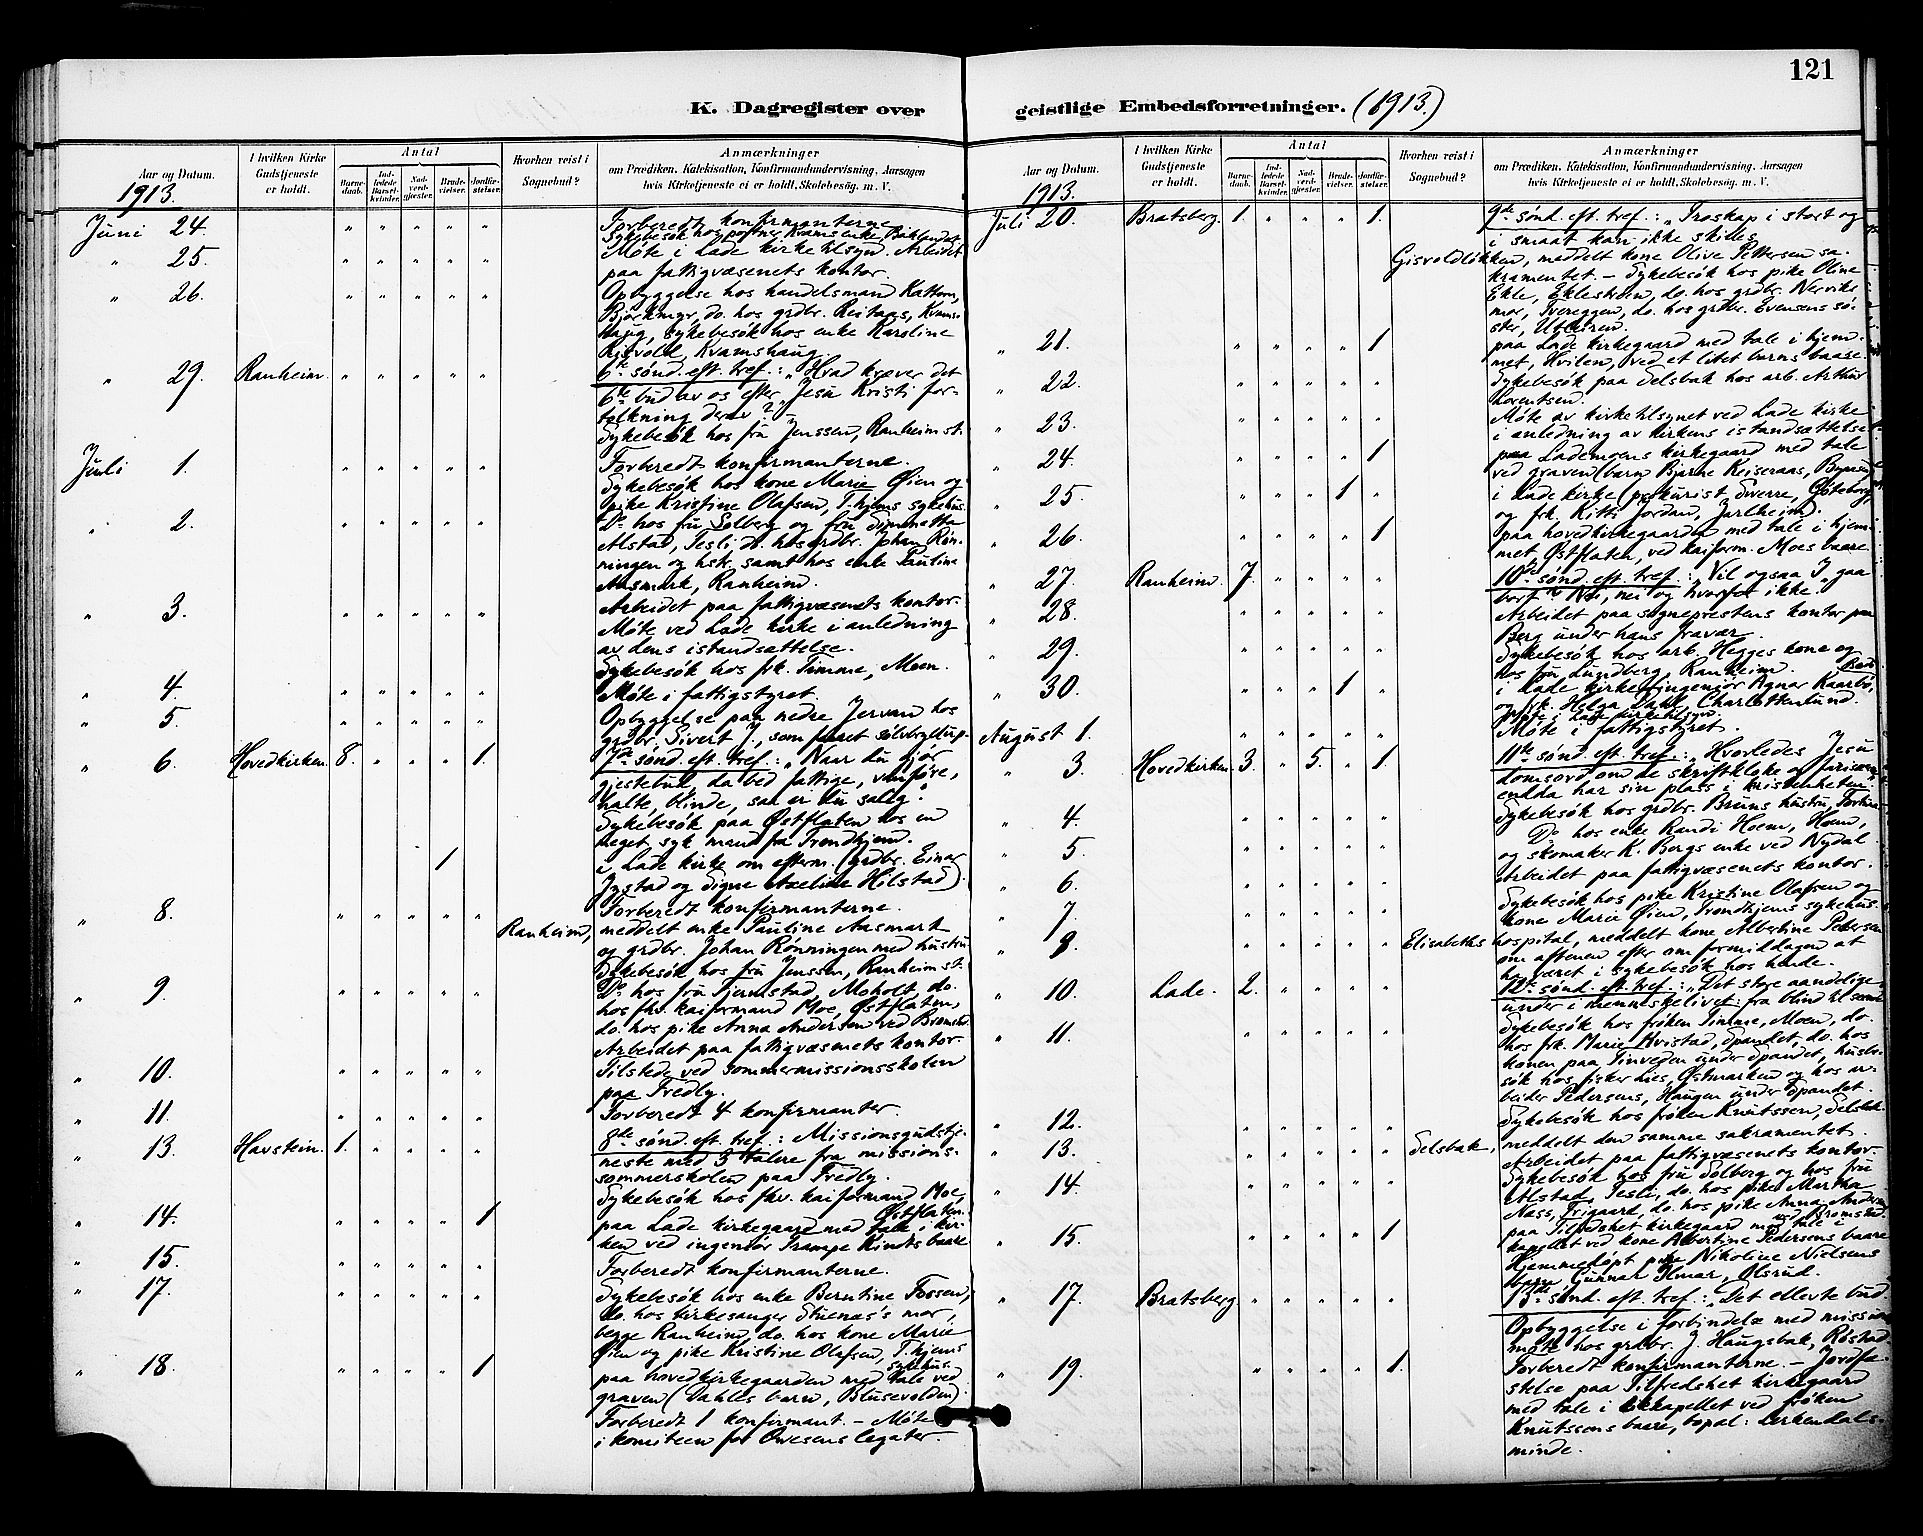 121
K. Dagregister over geistlige Embedsforretninger. (1913.)
Aar og Datum. I hvilken Kirke Gudstjeneste er holdt. Antal Barnedaab. Indledede Barselkvinder. Nadverdgjester. Brudevielser. Jordfæstelser. Hvorhen reist i Sognebud? Anmærkninger om Prædiken, Katekisation, Konfirmandundervisning, Aarsagen hvis Kirketjeneste ei er holdt, Skolebesøg, m. V.
1913.
Juni 24. " " " " " Forberedt konfirmanterne.
Sykebesök hos portner Kvams enke, Baklandet
" 25. " " " " " Möte i Lade kirketilsyn. Arbeidet
paa fattigvæsenets kontor.
" 26. " " " " " Opbyggelse hos handelsmand Kattem,
Björkmyr, do. hos grdbr. Reitaas, Kvams-
haug, sykebesök hos enke Karoline
Risvold, Kvamshaug.
" 29. Ranheim. " " " " " 6te sönd. eft. tref.: "Hvad kræver det
6te bud av os efter Jesu Kristi for-
tolkning derav?"
Sykebesök hos fru Jenssen, Ranheim st.
Juli 1. " " " " " Forberedt konfirmanterne.
Sykebesök hos kone Marie Öien og
pike Kristine Olafsen, T.hjems sykehus.
" 2. " " " " " Do. hos fru Solberg og fru
Alstad, Tesli, do. hos grdbr. Johan Rön-
ningen og hsk. samt hos enke Pauline
Aasmark, Ranheim.
" 3. " " " " " Arbeidet paa fattigvæsenets kontor.
Möte ved Lade kirke i anledning
av dens istandsættelse.
Sykebesök hos frk. Timme, Moen.
" 4. " " " " " Möte i fattigstyret.
" 5. " " " " " Opbyggelse paa nedre Jervan hos
grdbr. Sivert J., som feiret sölvbryllup.
" 6. Hovedkirken. 8. " " " 1. 7de sönd. eft. tref.: "Naar du gjör
gjestebud, da bed fattige, vanföre,
halte, blinde, saa er du salig."
Sykebesök paa Östflaten hos en
meget syk mand fra Trondhjem.
1 i Lade kirke om efterm. (grdbr. Einar
Jystad og Signe Axeline Hilstad).
" 8. " " " " " Forberedt konfirmanterne.
Ranheim, meddelt enke Pauline Aasmark
og grdbr. Johan Rönningen med hustru
Sykebesök hos fru Jenssen, Ranheim st.
" 9. " " " " " Do. hos fru Fjermstad, Moholt, do.
hos fhv. kaiformand Moe, Östflaten,
do. hos pike Anna Andersen ved Bromstad.
Arbeidet paa fattigvæsenets kontor.
" 10. " " " " " Tilstede ved sommermissionsskolen
paa Fredly.
" 11. " " " " " Forberedt 4 konfirmanter.
" 13. Havstein. 1. " " " " 8de sönd. eft. tref.: Missionsgudstje-
neste med 3 talere fra missions-
sommerskolen paa Fredly.
Sykebesök hos fhv. kaiformand Moe,
Östflaten.
" 14. " " " " 1 paa Lade kirkegaard med tale i kir-
ken ved ingeniör Trampe Kindts baare
" 15. " " " " " Forberedt konfirmanterne.
" 17. " " " " " Sykebesök hos enke Berntine Fossen,
do. hos kirkesanger Stuenæs's mor,
begge Ranheim, do. hos kone Marie
Öien og pike Kristine Olafsen, T.hjems
sykehus.
" 18. " " " " 1 paa hovedkirkegaarden med tale ved
graven (Dahles barn, Blusevolden).
Forberedt 1 konfirmant. - Möte
i komiteen for Owesens legater.
Aar og Datum. I hvilken Kirke Gudstjeneste er holdt. Antal Barnedaab. Indledede Barselkvinder. Nadverdgjester. Brudevielser. Jordfæstelser. Hvorhen reist i Sognebud? Anmærkninger om Prædiken, Katekisation, Konfirmandundervisning, Aarsagen hvis Kirketjeneste ei er holdt, Skolebesøg, m. V.
1913.
Juli 20. Bratsberg. 1. " " " 1. 9de sönd. eft. tref.: "Troskap i stort og
i smaat kan ikke skilles
Gisvoldlökken, meddelt kone Olive Pettersen sa-
kramentet. - Sykebesök hos pike Oline
Ekle, Eklestrøen, do. hos grdbr. Nervik's
mor, Tvereggen, do. hos grdbr. Evensens sö-
ster, Utleiren.
" 21. " " " " 1 paa Lade kirkegaard med tale i hjem-
met, Hvilen, ved et litet barns baare.
" 22. " " " " " Sykebesök paa Selsbak hos arb. Arthur
Lorentsen.
" 23. " " " " " Möte av kirketilsynet ved Lade kirke
i anledning av kirkens istandsættelse
" 24. " " " " 1 paa Lademoens kirkegaard med tale
ved graven (barn Bjarne Reiseraas,
" 25. " " " 1 " i Lade kirke (prokurist Sverre, Göteborg,
og frk. Kitti Jordan, Jarlheim).
" 26. " " " " 1 paa hovedkirkegaarden med tale i hjem-
met, Östflaten, ved kaiform. Moes baare
" 27. Ranheim. 7. " " " " 10de sönd. eft. tref.: "Vil ogsaa I gaa
bort?" Nei, nei og hvorfor ikke.
" 28. " " " " " Arbeidet paa sogneprestens kontor paa
Berg under hans fravær.
" 29. " " " " " Sykebesök hos arb. Hegges kone og
hos fru Lundberg, Ranheim.
" 30. " " " 1 " i Lade kirke (ingeniör Agnar Kaarbö, Bodö
og frk. Helga Dahl, Charlottenlund.
Möte i Lade kirketilsyn.
August 1. Möte i fattigstyret.
" 3. Hovedkirken. 3. " 5. " 1 11te sönd. eft. tref.: "Hvorledes Jesu
domsord om de skriftkloke og farisæerne
endda har sin plass i kristenheten."
Sykebesök hos grdbr. Bruns hustru,
" 4. " " " " " Do. hos enke Randi Hoem, Hoem,
og skomaker K. Bergs enke ved Nydal.
" 5. " " " " " Arbeidet paa fattigvæsenets kontor.
" 6. " " " " " Sykebesök hos pike Kristine Olafsen og
kone Marie Öien, Trondhjems sykehus.
" 7. " " " " "
" 8. " " " " " Elisabeths hospital, meddelt kone Albertine Pedersen
om aftenen efter om formiddagen at
ha været i sykebesök hos hende.
" 10. Lade. 2. " " " " 12te sönd. eft. tref.: "Det store aandelige
under i menneskelivet: fra blind til seende
" 11. " " " " " Sykebesök hos fröken Timme, Moen, do.
hos frk. Marie Kvistad, Spandet, do. hos
konen paa Tinveden under Spandet, husbe-
sök hos fisker Lies, Östmarken og hos ar-
beider Pedersens, Haugen under Spandet.
" 12. " " " " " Sykebesök hos fröken Knutssen, Selsbak.
" 13. " " " " " Selsbak, meddelt den samme sakramentet.
Arbeidet paa fattigvæsenets kontor.
" 14. " " " " " Sykebesök hos fru Solberg og hos fru
Alstad, Tesli, do. hos pike Martha
Næss, Frigaard, do. hos pike Anna Andersen
ved Bromstad.
" 15. " " " " 1 paa Tilfredshet kirkegaard med tale i
kapellet ved kone Albertine Pedersens baare
Hjemmedöpt pike Nikoline Nielsens
barn Gunnar Ilmar, Olsrud.
" 17. Bratsberg. " " " " " 13de sönd. eft. tref.: "Det ellevte bud
Opbyggelse i forbindelse med missions-
möte hos grdbr. J. Haugsbak, Röstad
" 19. " " " " 1. Forberedt konfirmanterne. - Jordfæ-
stelse paa Tilfredshet kirkegaard
med tale i likkapellet ved fröken
Knutssens baare, bopæl: Lerkendals-
minde.